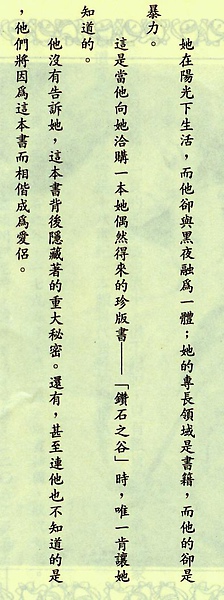 她在陽光下生活，而他卻與黑夜融為一體；她的專長領域是書籍，而他的卻是
暴力。
這是當他向她洽購一本她偶然得來的珍版書——「鑽石之谷」時，唯一肯讓她
知道的。
他沒有告訴她，這本書背後隱藏著的重大秘密。還有，甚至連他也不知道的是
，他們將因為這本書而相偕成為愛侶。